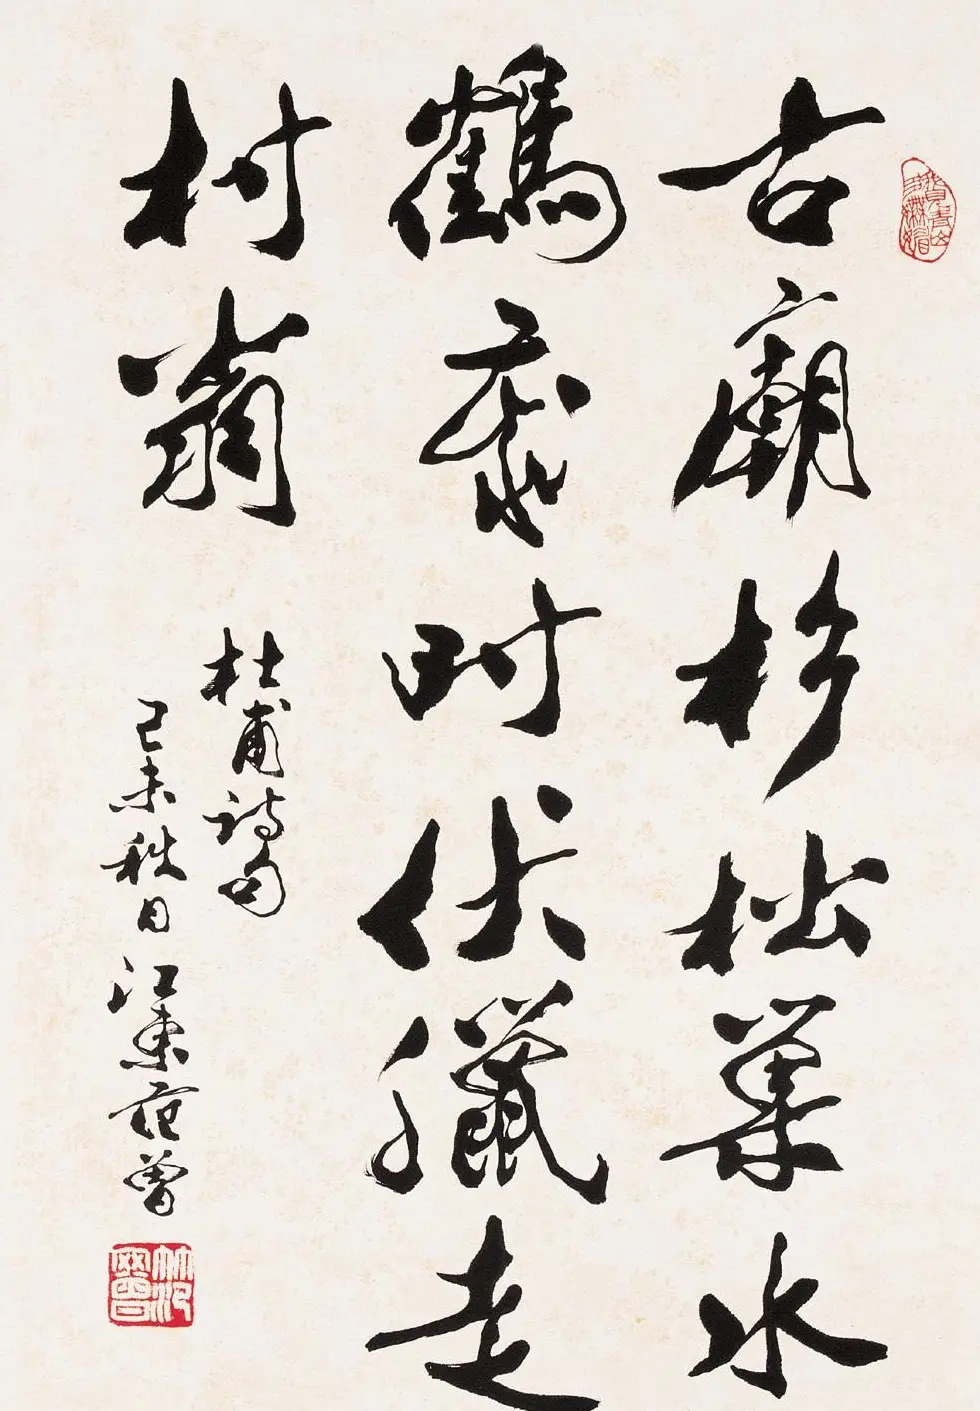 古廟杉松巢水
鶴歲时伏臘走
村翁
杜甫詩句
己未秋日江東范曾
范曾